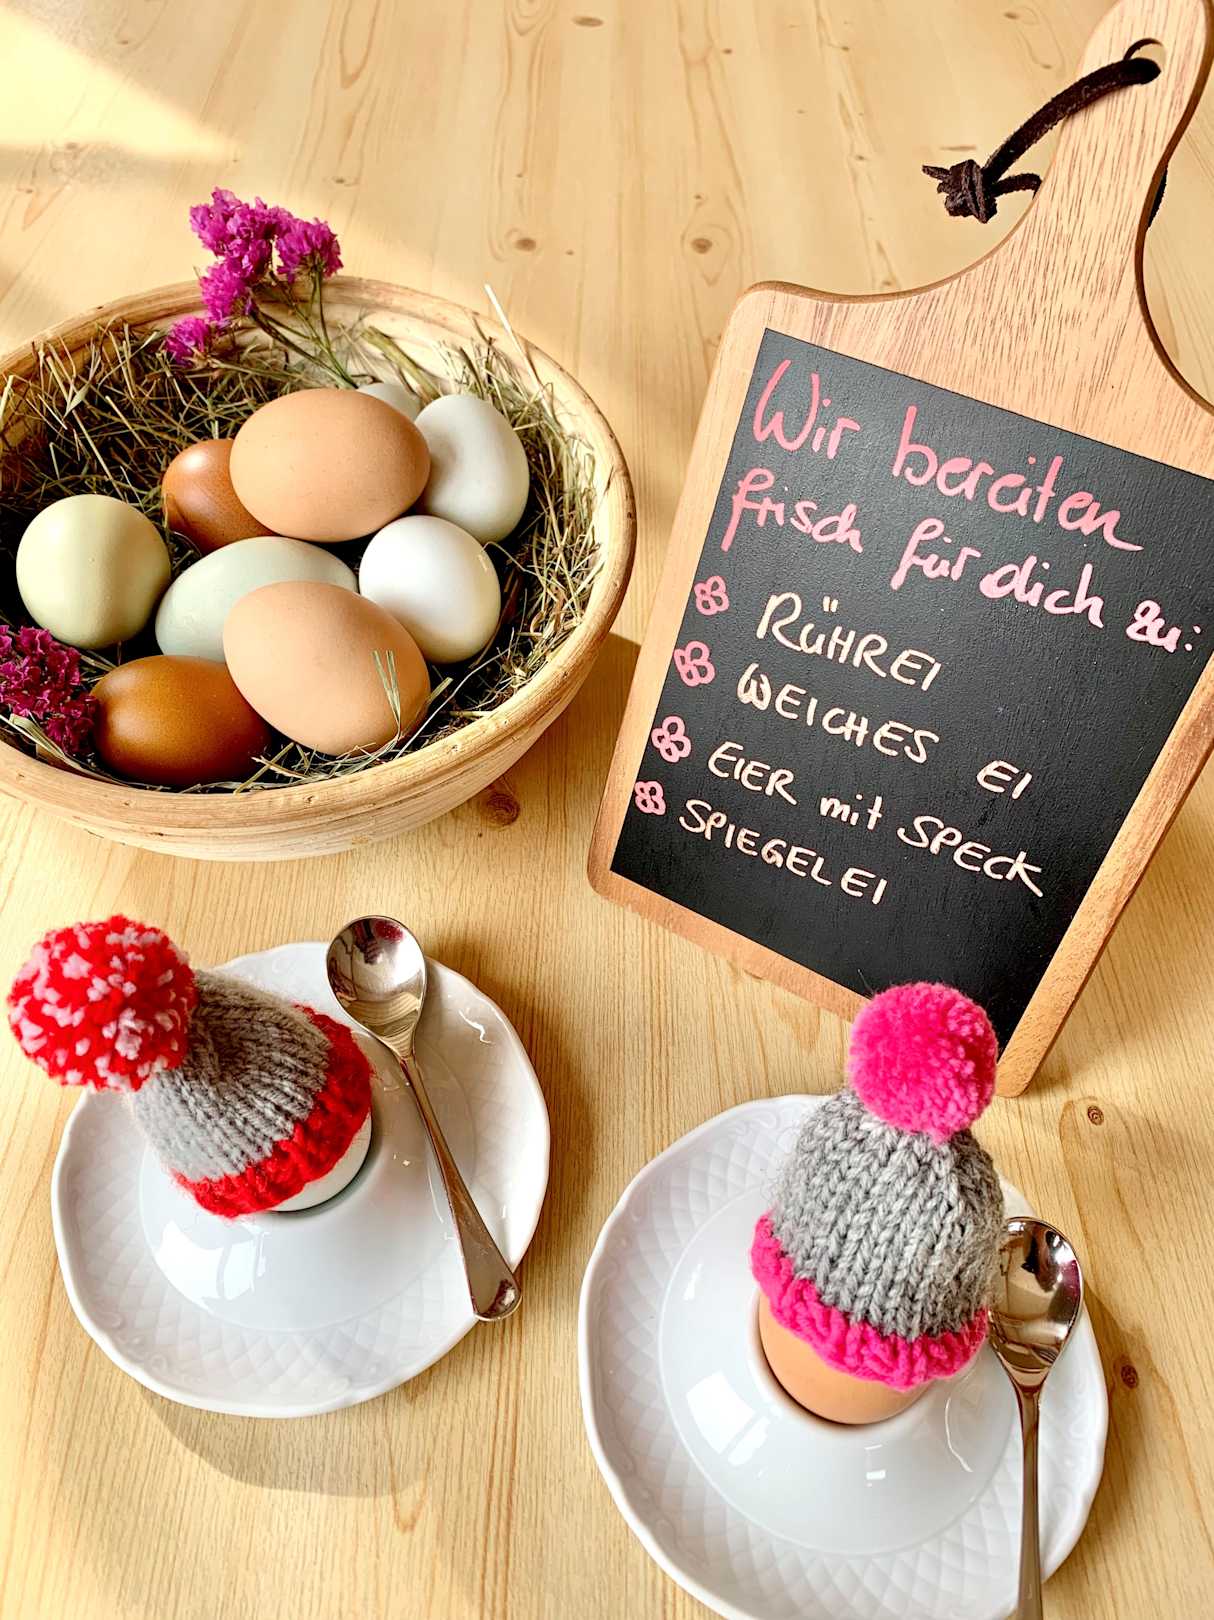 Wir bereiten
frisch für dich zu:
RÜHREI
WEICHES EI
EIER mit SPECK
SPIEGELEI